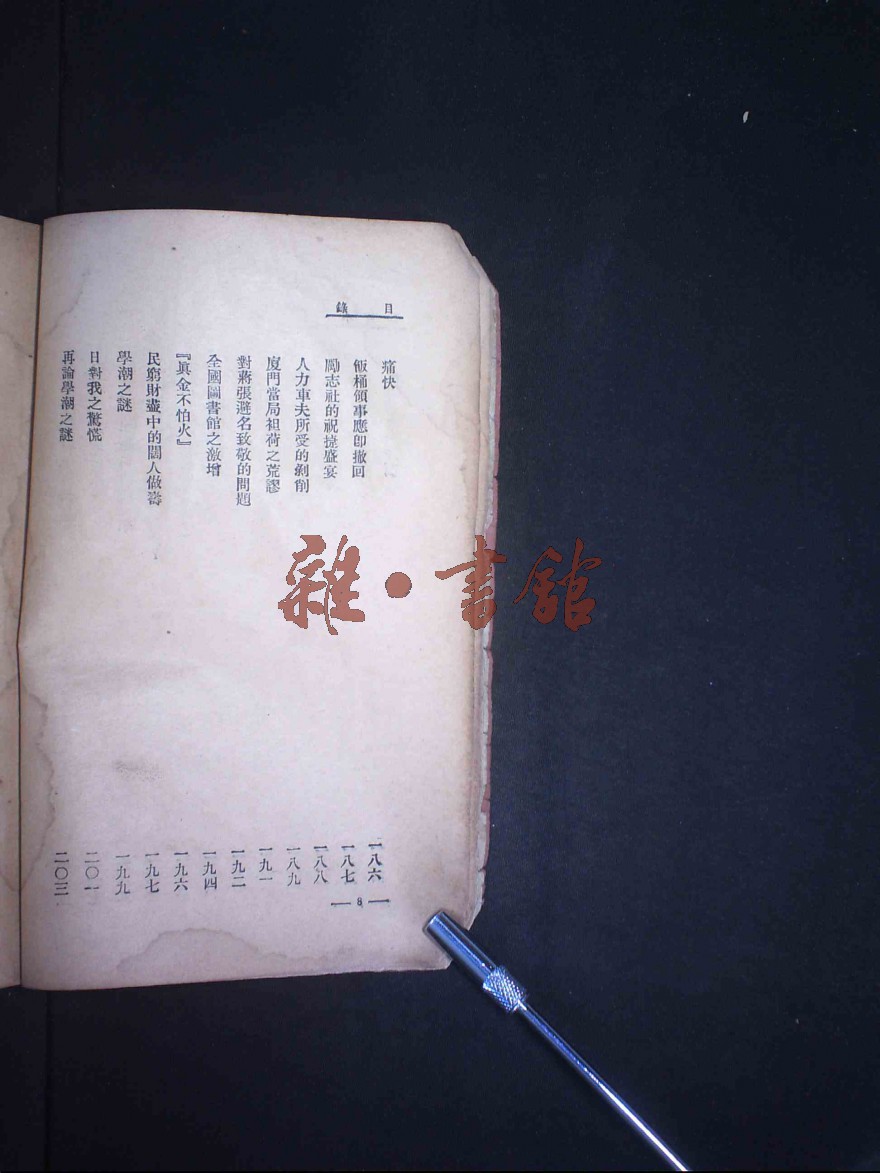 目錄
痛快 一八六
飯桶領事應卽撤回 一八七
勵志社的祝捷盛宴 一八八
人力車夫所受的剝削 一八九
廈門當局袒荷之荒謬 一九一
對蔣張避名致敬的問題 一九二
全國圖書館之激增 一九四
『眞金不怕火』 一九六
民窮財盡中的闊人做壽 一九七
學潮之謎 一九九
日對我之驚慌 二〇一
再論學潮之謎 二〇三
— 8 —
雜·書館